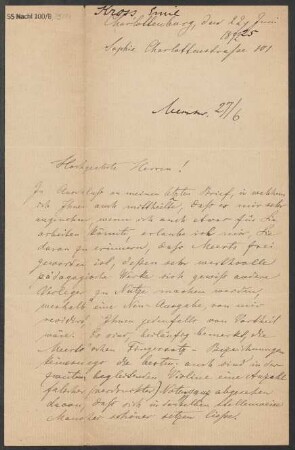 55 Nachl 100/B,
Kross, Emil
Charlottenburg, den 22ten Juni
1925
Sophie Charlottenstrasse 101
27/6
Hochgeehrte Herren!
Im Anschluß an meinen letzten Brief, in welchem
ich Ihnen auch mittheilte, daß es mir sehr
angenehm wenn ich auch etwas für Sie
arbeiten könnte, erlaube ich mir, Sie
daran zu erinnern, daß Meerts frei
geworden ist, dessen sehr werthvolle
pädagogische Werke sich gewiß andere
Verleger zu Nutze machen werden,
weshalb eine Neu-Ausgabe, von mir
revidirt, Ihnen jedenfalls von Vortheil
wäre. Es sind, beiläufig bemerkt, die
Meerts'schen Fingersatz-Bezeichnungen
keineswegs die besten, auch sind in der
begleitenden Violine eine Anzahl
falscher Noten, ganz abgesehen
davon, daß sich in derselben stellenweise
Manches schöner setzen ließe.